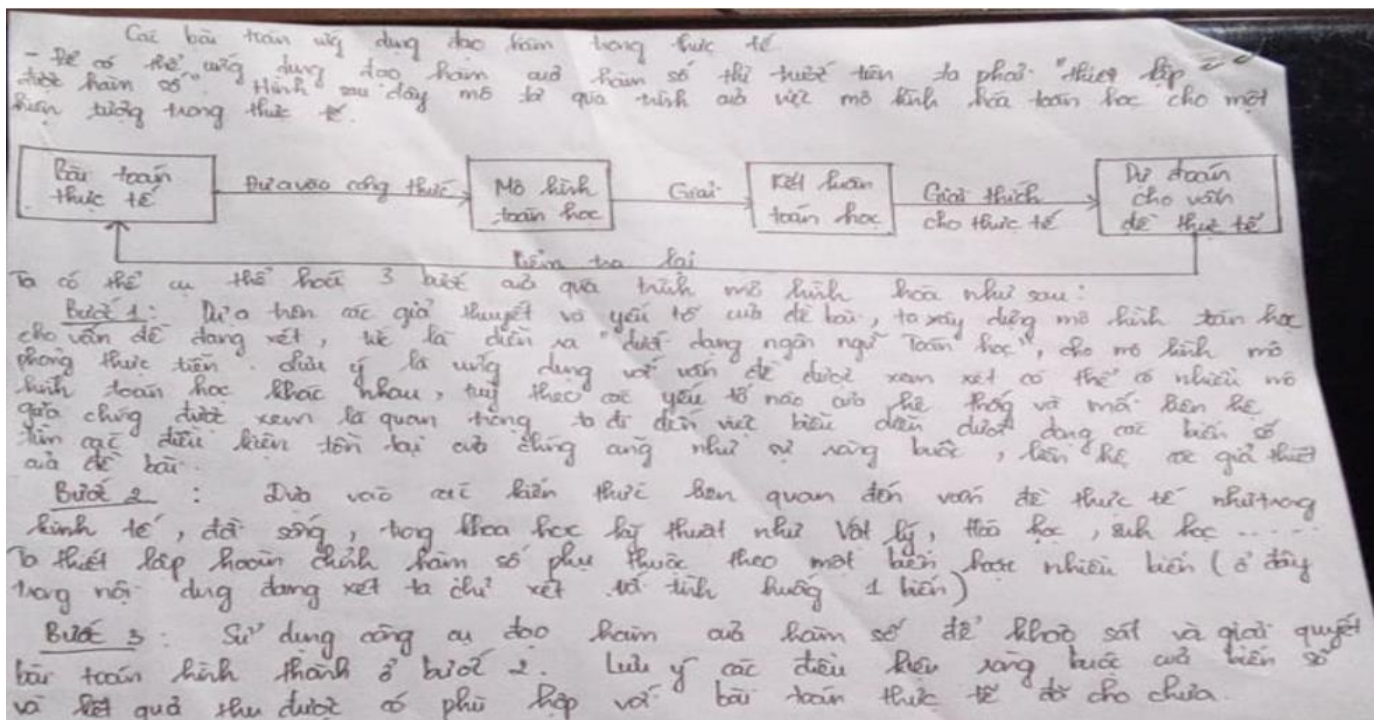 Các bài toán ứng dụng đạo hàm trong thực tế
- Để có thể ứng dụng đạo hàm của hàm số thì trước tiên ta phải "thiết lập
được hàm số". Hình sau đây mô tả quá trình của việc mô hình hóa toán học cho một
hiện tượng trong thực tế.
Bài toán
thực tế
Dựa vào công thức
Mô hình
toán học
Giải
Kết luận
toán học
Giải thích
cho thực tế
Dự đoán
cho vấn
đề thực tế
Kiểm tra lại
Ta có thể cụ thể hoá 3 bước của quá trình mô hình hóa như sau:
Bước 1: Dựa trên các giả thuyết và yếu tố của đề bài, ta xây dựng mô hình toán học
cho vấn đề đang xét, tức là diễn ra "dưới dạng ngôn ngữ Toán học", cho mô hình mô
phỏng thực tiễn. Lưu ý là ứng dụng với vấn đề được xem xét có thể có nhiều mô
hình toán học khác nhau, tuỳ theo các yếu tố nào của hệ thống và mối liên hệ
giữa chúng được xem là quan trọng ta đi đến việc biểu diễn dưới dạng các biến số
tìm các điều kiện tồn tại của chúng cũng như sự ràng buộc, liên hệ các giả thiết
của đề bài.
Bước 2: Dựa vào các kiến thức liên quan đến vấn đề thực tế như trong
kinh tế, đời sống, trong khoa học kỹ thuật như Vật lý, Hóa học, sinh học .....
Ta thiết lập hoàn chỉnh hàm số phụ thuộc theo một biến hoặc nhiều biến (ở đây
trong nội dung đang xét ta chỉ xét với tình huống 1 biến)
Bước 3: Sử dụng công cụ đạo hàm của hàm số để khảo sát và giải quyết
bài toán hình thành ở bước 2. Lưu ý các điều kiện ràng buộc của biến số
và kết quả thu được có phù hợp với bài toán thực tế đã cho chưa.